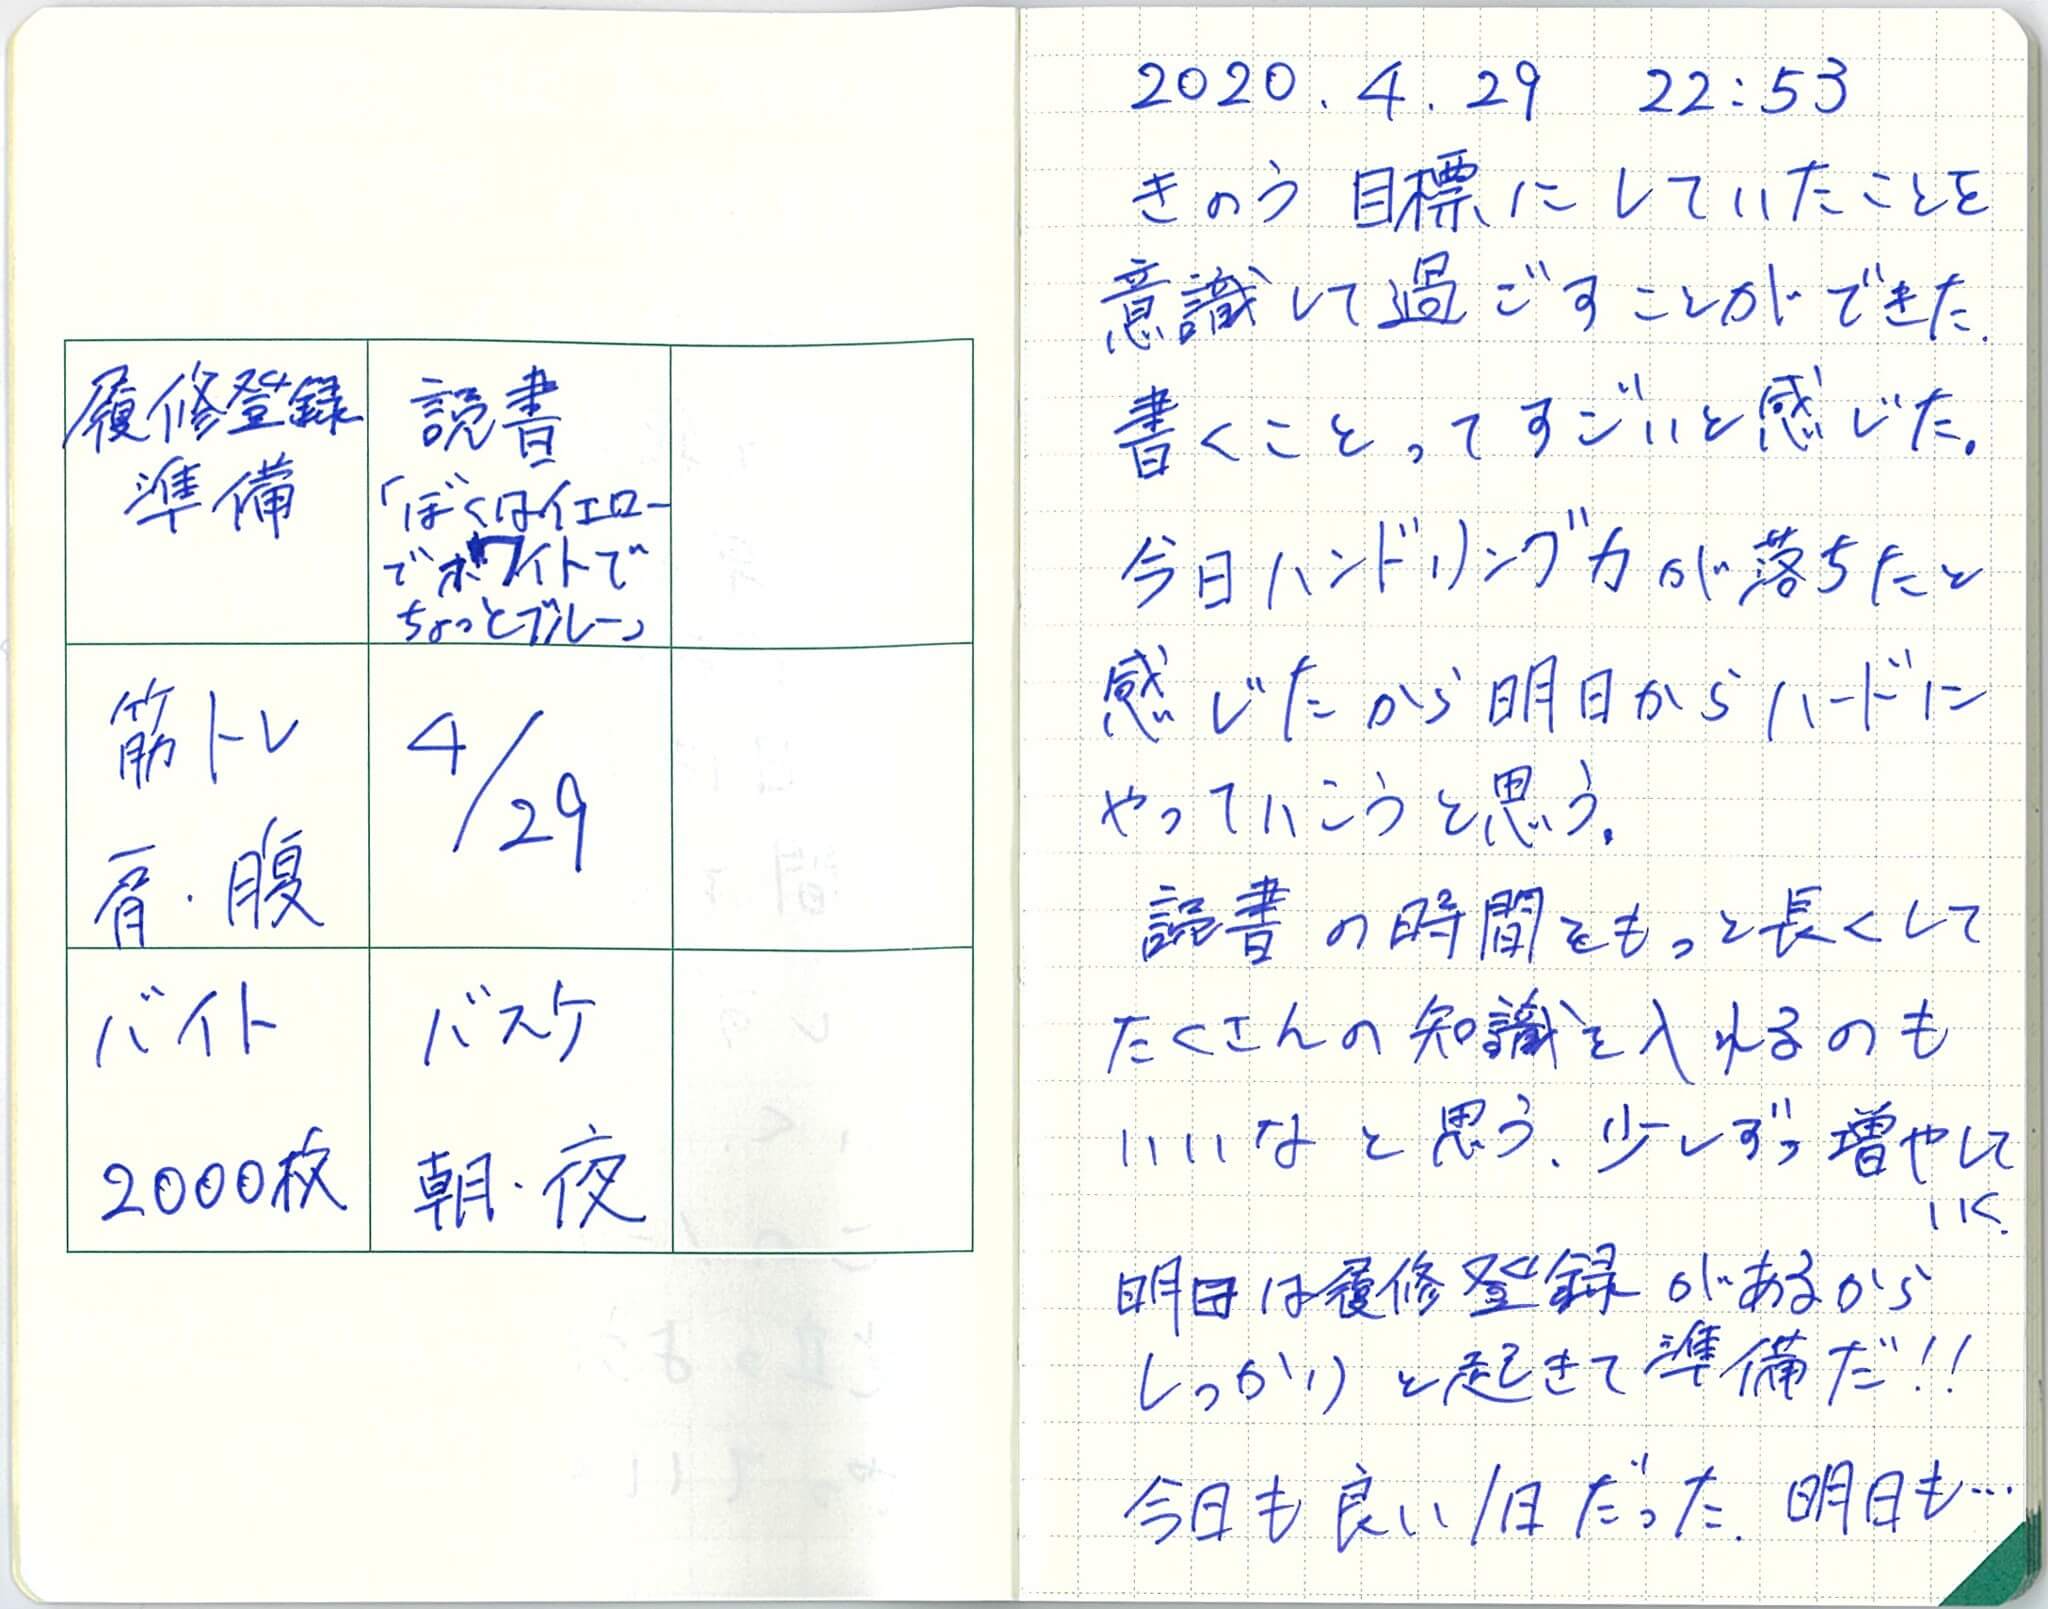 履修登録
準備
読書
「ぼくはイエロー
でホワイトで
ちょっとブルー」
筋トレ
肩・腹
4/29
バイト
2000枚
バスケ
朝・夜
2020.4.29 22:53
きのう目標にしていたことを
意識して過ごすことができた.
書くことってすごいと感じた.
今日ハンドリング力が落ちたと
感じたから明日からハードに
やっていこうと思う.
読書の時間をもっと長くして
たくさんの知識を入れるのも
いいなと思う.少しずつ増やして
いく.
明日は履修登録があるから
しっかりと起きて準備だ!!
今日も良い1日だった.明日も…